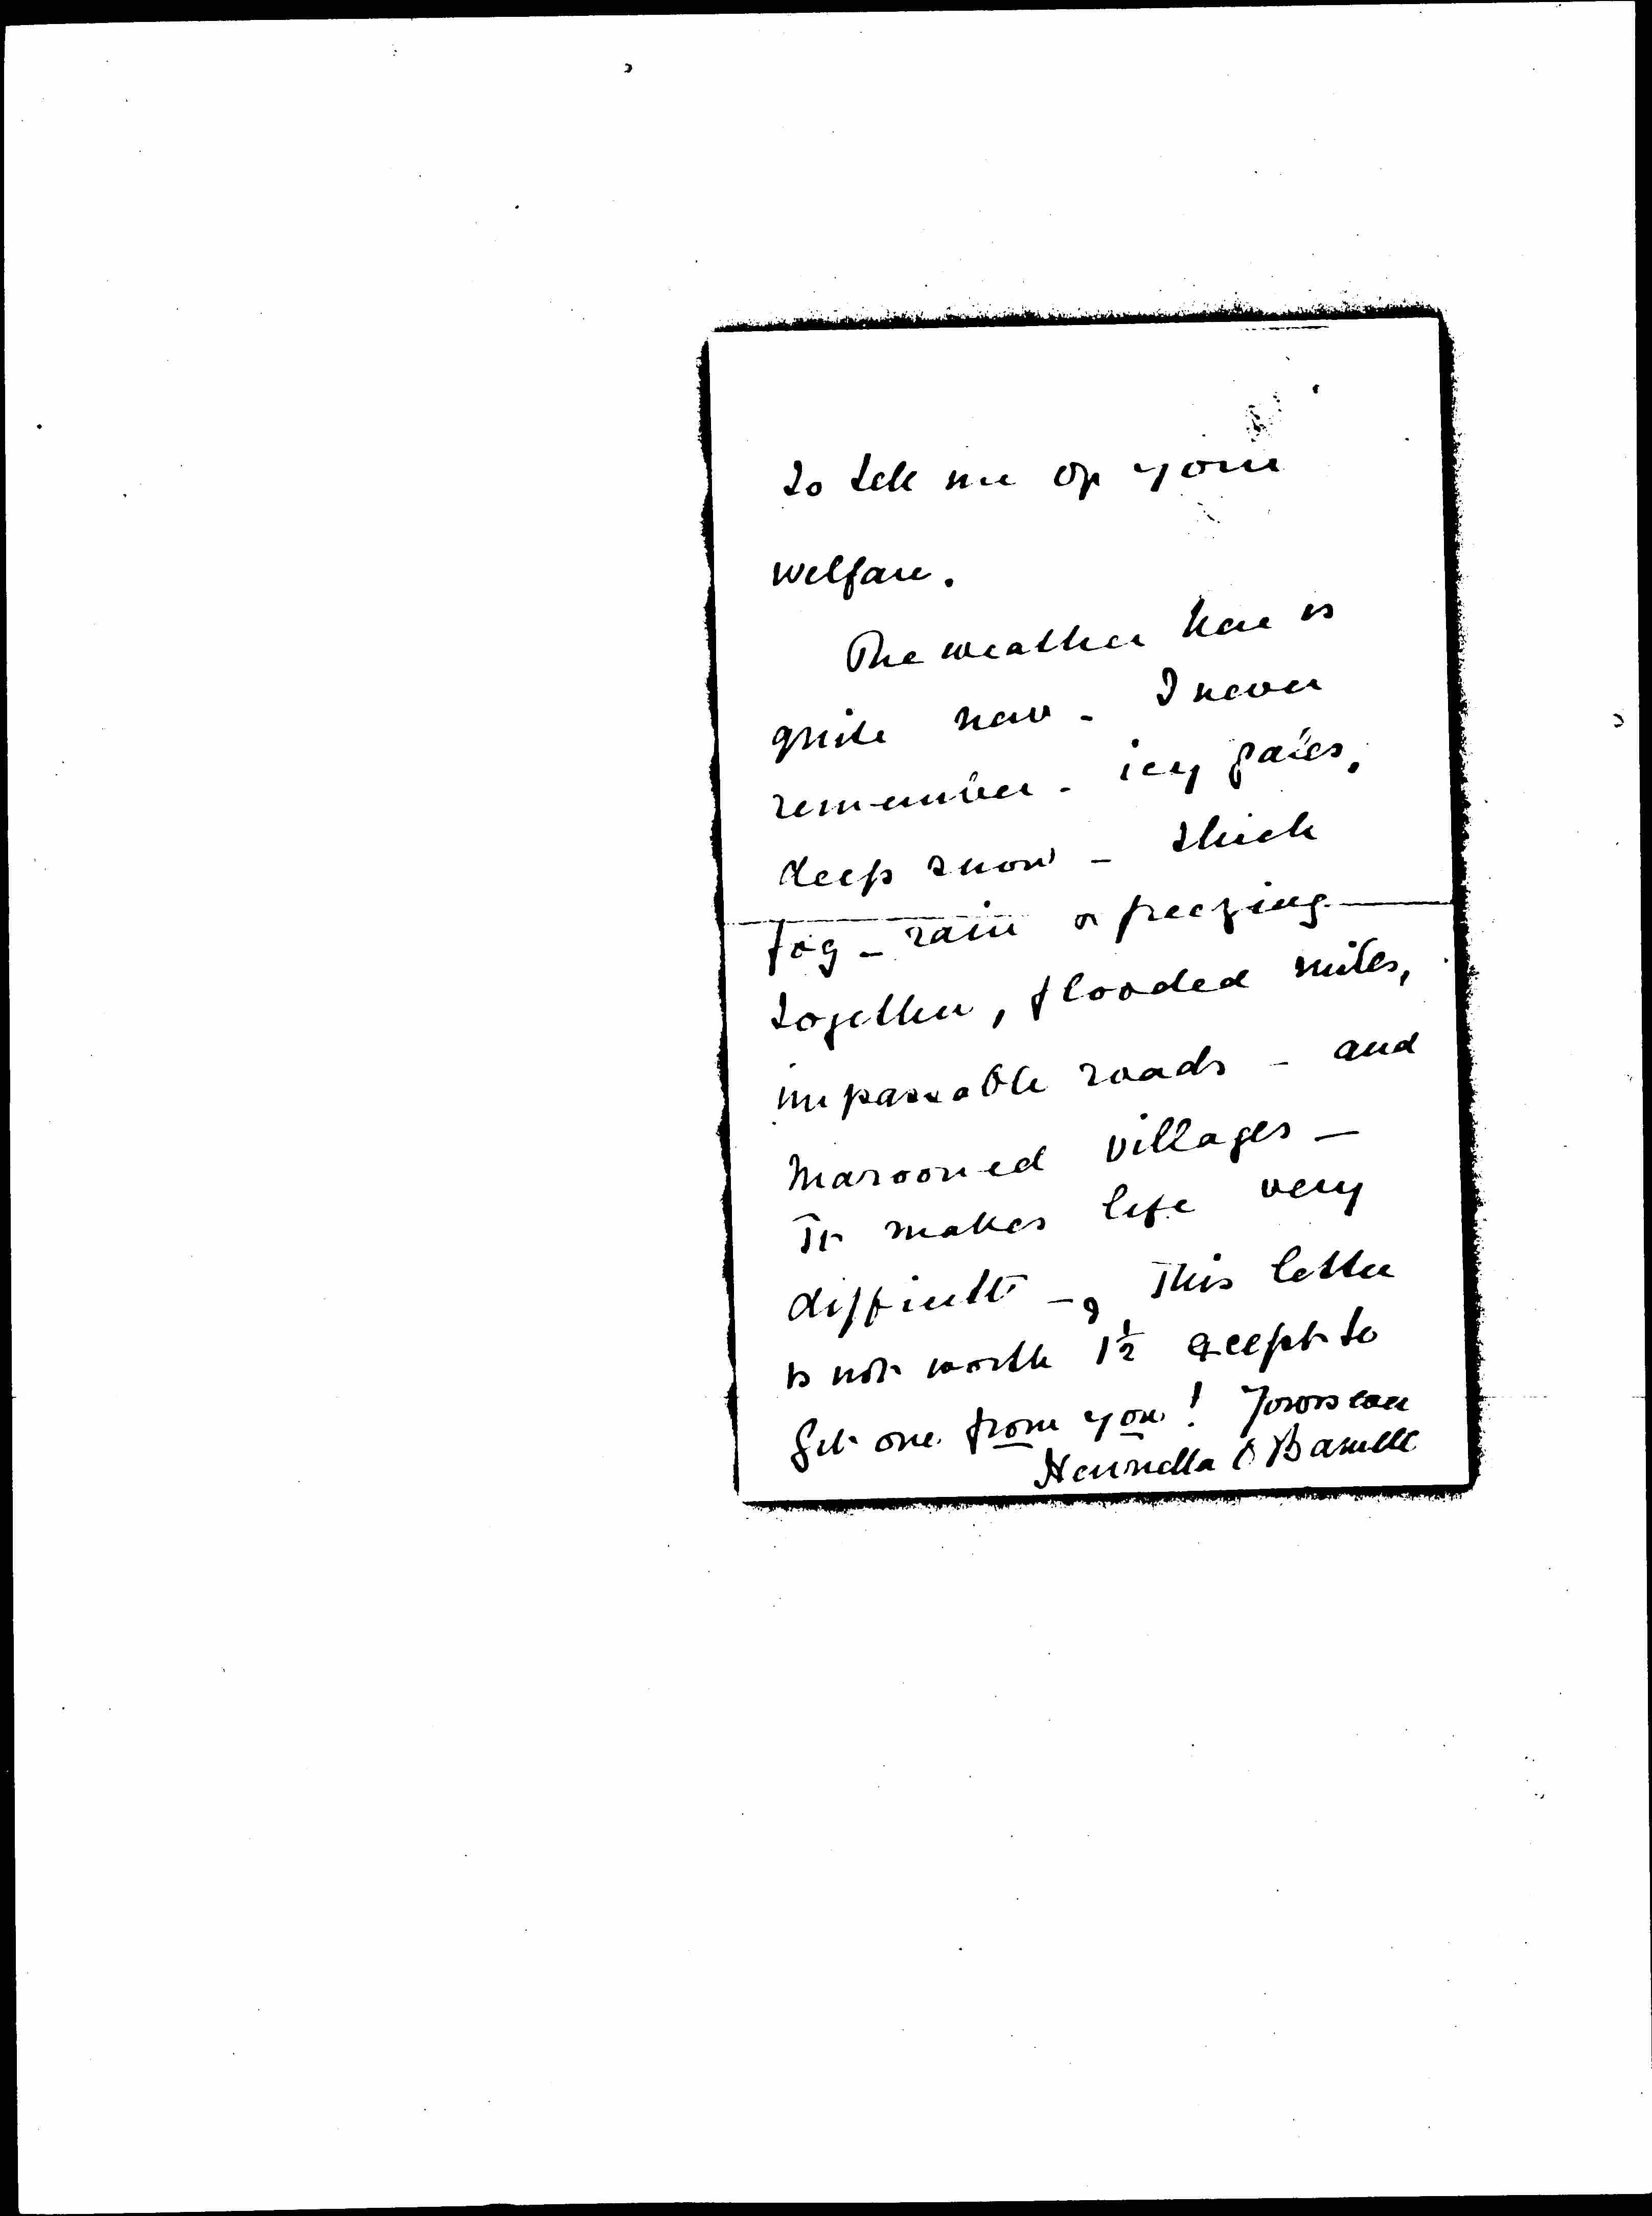 to tell me of your
welfare.
The weather here is
quite new - I never
remember - icy gales,
deep snow - thick
fog - rain & freezing
together, flooded miles,
impassable roads - and
marooned villages -
It makes life very
difficult - & This letter
is not worth 1½ except to
get one from you! Yours ever
Henrietta O Barnett